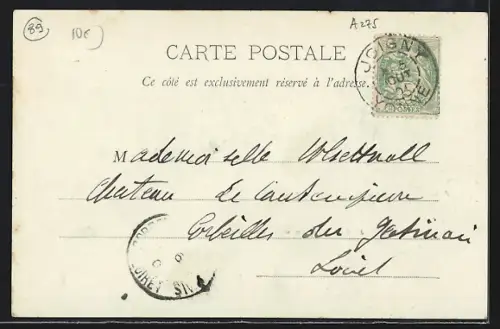 89
10€
A275
CARTE POSTALE
Ce côté est exclusivement réservé à l'adresse.
JOIGNY
YONNE
Mademoiselle
Chateau de
Corbeilles du Gatinais
Loiret
LOIRET